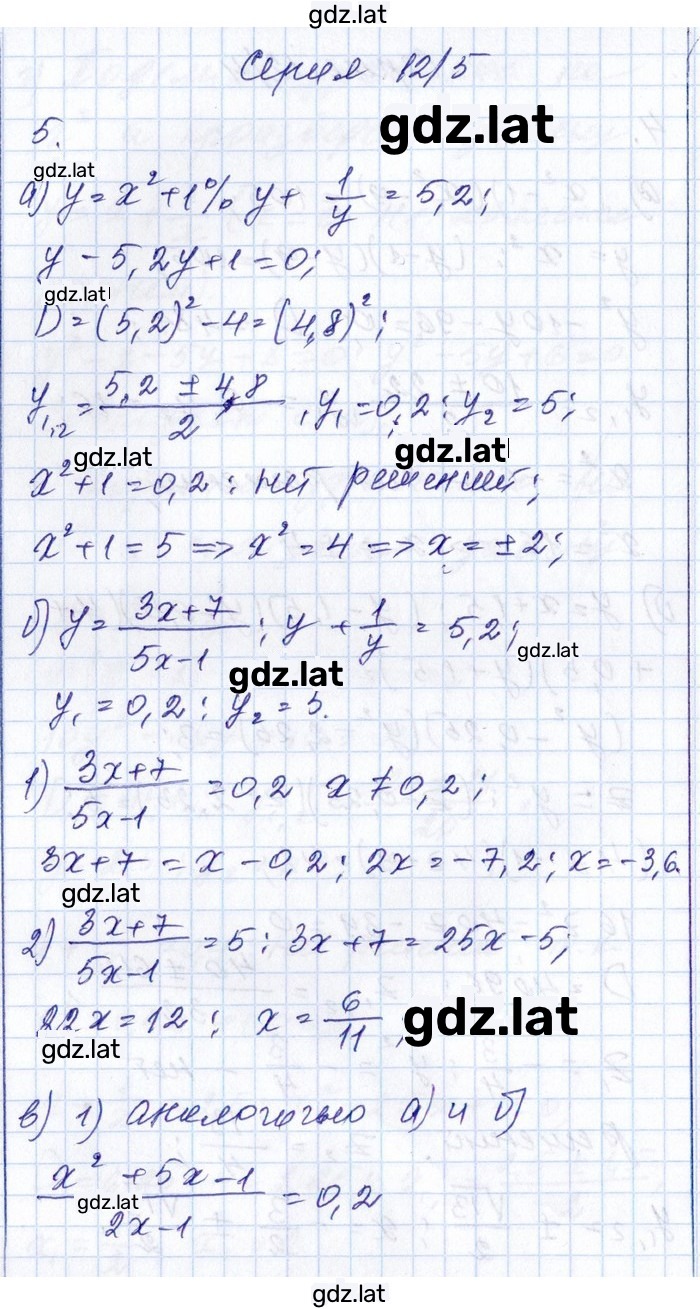 gdz.lat
Серия 12/5
gdz.lat
5.
gdz.lat
а) y = x² + 1% y + 1/y = 5,2;
y - 5,2y + 1 = 0;
gdz.lat
D = (5,2)² - 4 = (4,8)²;
y₁,₂ = (5,2 ± 4,8)/2, y₁ = 0,2; y₂ = 5;
gdz.lat
gdz.lat
x² + 1 = 0,2; нет решений;
x² + 1 = 5 => x² = 4 => x = ±2;
б) y = (3x+7)/(5x-1); y + 1/y = 5,2;
gdz.lat
gdz.lat
y₁ = 0,2; y₂ = 5.
1) (3x+7)/(5x-1) = 0,2 x ≠ 0,2;
3x + 7 = x - 0,2; 2x = -7,2; x = -3,6.
gdz.lat
2) (3x+7)/(5x-1) = 5; 3x + 7 = 25x - 5;
22x = 12; x = 6/11;
gdz.lat
gdz.lat
в) 1) аналогично а) и б)
(x² + 5x - 1)/(2x - 1) = 0,2
gdz.lat
gdz.lat